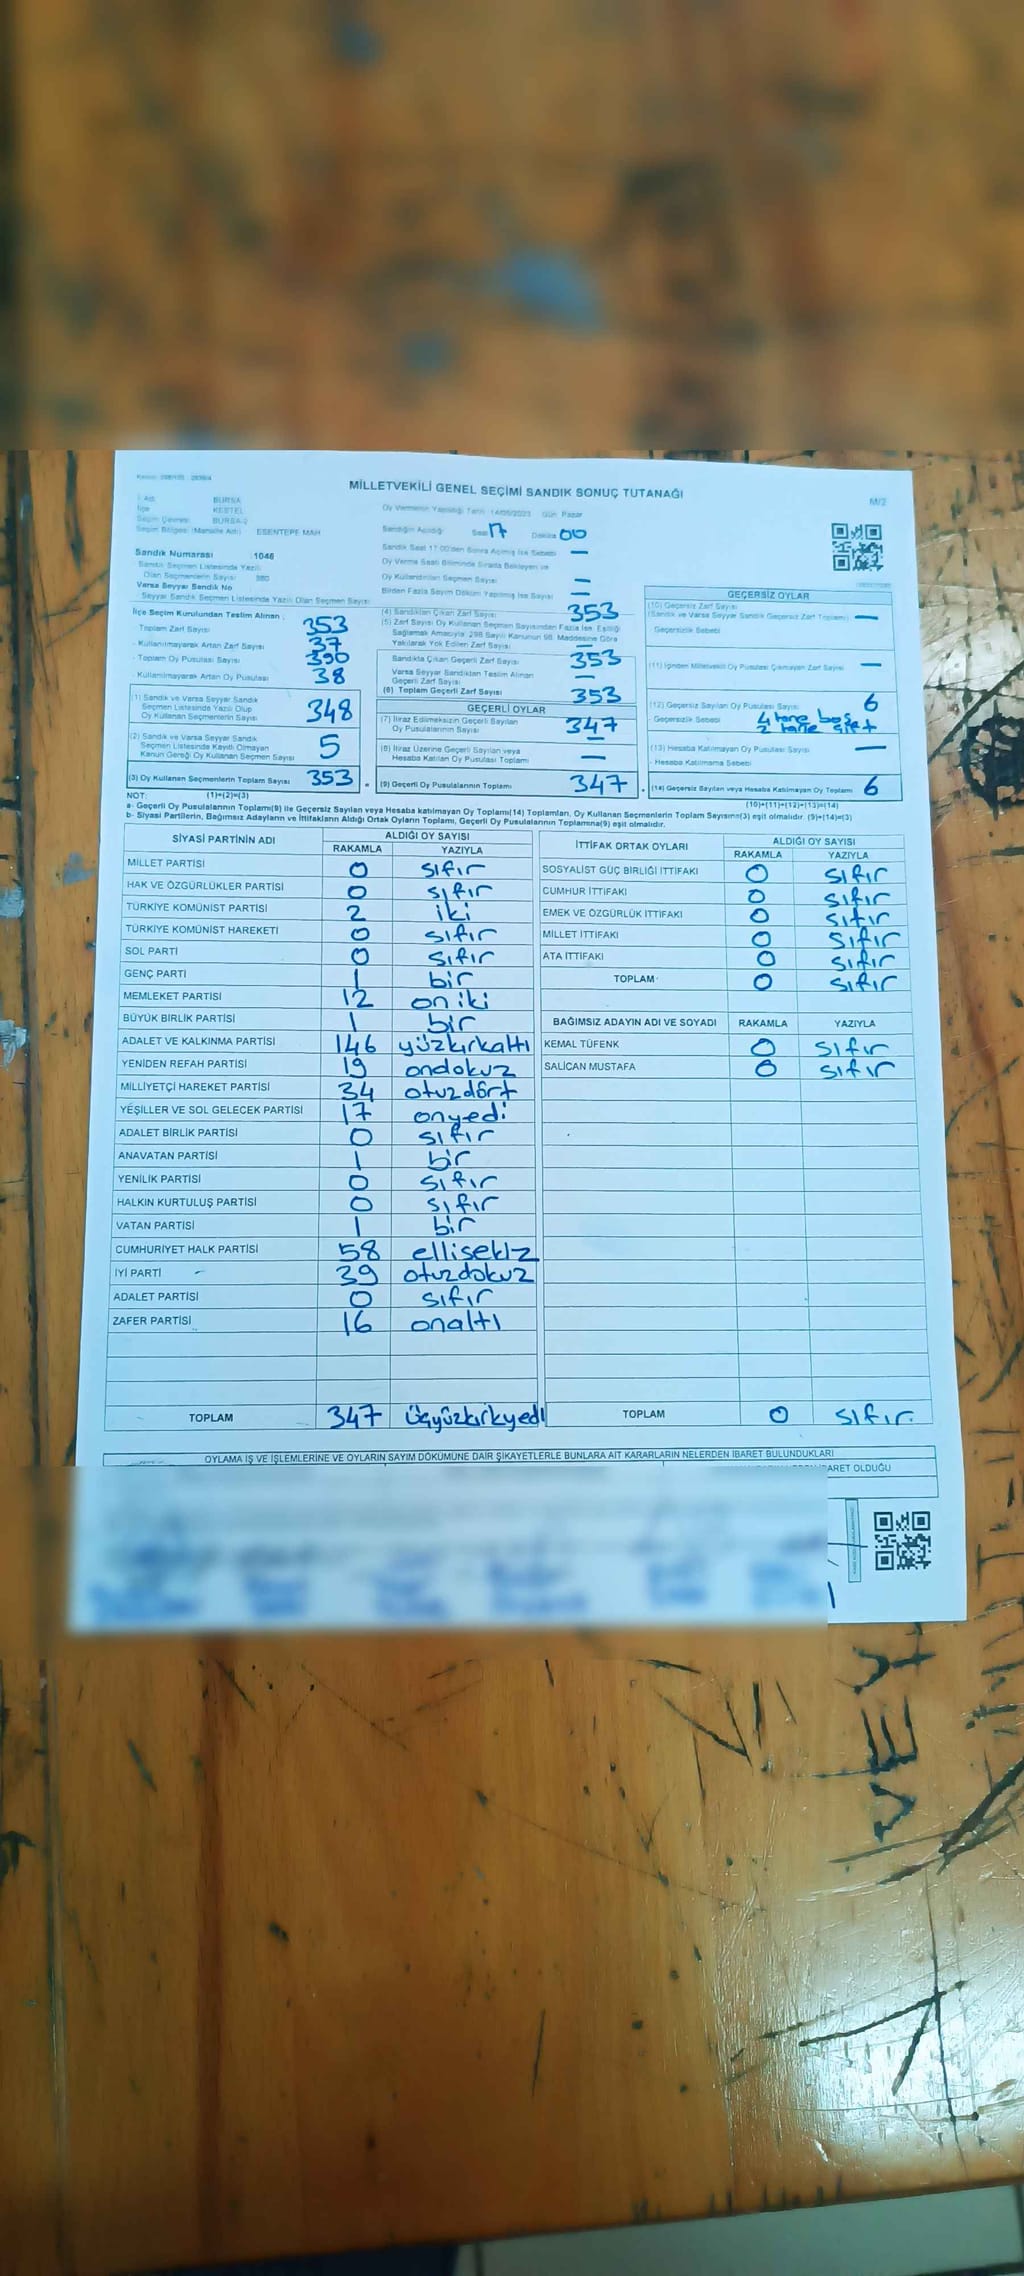 MİLLETVEKİLİ GENEL SEÇİMİ SANDIK SONUÇ TUTANAĞI
M/2
İl Adı BURSA
İlçe KESTEL
Seçim Çevresi BURSA-2
Seçim Bölgesi (Mahalle Adı) ESENTEPE MAH
Oy Vermenin Yapıldığı Tarih 14/05/2023 Gün Pazar
Sandığın Açıldığı Saat 17 Dakika 00
Sandık Saat 17.00'den Sonra Açılmış İse Sebebi —
Oy Verme Saati Bitiminde Sırada Bekleyen ve
Oy Kullandırılan Seçmen Sayısı —
Birden Fazla Sayım Döküm Yapılmış İse Sayısı —
Sandık Numarası 1046
Sandık Seçmen Listesinde Yazılı
Olan Seçmenlerin Sayısı 380
Varsa Seyyar Sandık No
Seyyar Sandık Seçmen Listesinde Yazılı Olan Seçmen Sayısı
İlçe Seçim Kurulundan Teslim Alınan
Toplam Zarf Sayısı 353
- Kullanılmayarak Artan Zarf Sayısı 37
- Toplam Oy Pusulası Sayısı 390
- Kullanılmayarak Artan Oy Pusulası 38
(1) Sandık ve Varsa Seyyar Sandık
Seçmen Listesinde Yazılı Olup
Oy Kullanan Seçmenlerin Sayısı 348
(2) Sandık ve Varsa Seyyar Sandık
Seçmen Listesinde Kayıtlı Olmayan
Kanun Gereği Oy Kullanan Seçmen Sayısı 5
(3) Oy Kullanan Seçmenlerin Toplam Sayısı 353
(4) Sandıktan Çıkan Zarf Sayısı 353
(5) Zarf Sayısı Oy Kullanan Seçmen Sayısından Fazla İse, Eşitliği
Sağlamak Amacıyla 298 Sayılı Kanunun 98. Maddesine Göre
Yakılarak Yok Edilen Zarf Sayısı —
Sandıkta Çıkan Geçerli Zarf Sayısı 353
Varsa Seyyar Sandıktan Teslim Alınan
Geçerli Zarf Sayısı —
(6) Toplam Geçerli Zarf Sayısı 353
GEÇERLİ OYLAR
(7) İtiraz Edilmeksizin Geçerli Sayılan
Oy Pusulalarının Sayısı 347
(8) İtiraz Üzerine Geçerli Sayılan veya
Hesaba Katılan Oy Pusulası Toplamı —
(9) Geçerli Oy Pusulalarının Toplamı 347
GEÇERSİZ OYLAR
(10) Geçersiz Zarf Sayısı
(Sandık ve Varsa Seyyar Sandık Geçersiz Zarf Toplamı) —
Geçersizlik Sebebi
(11) İçinden Milletvekili Oy Pusulası Çıkmayan Zarf Sayısı —
(12) Geçersiz Sayılan Oy Pusulası Sayısı 6
- Geçersizlik Sebebi 4 tane boş
2 tane çift
(13) Hesaba Katılmayan Oy Pusulası Sayısı —
- Hesaba Katılmama Sebebi
(14) Geçersiz Sayılan veya Hesaba Katılmayan Oy Toplamı 6
NOT: (1)+(2)=(3)
(10)+(11)+(12)+(13)=(14)
a- Geçerli Oy Pusulalarının Toplamı(9) ile Geçersiz Sayılan veya Hesaba katılmayan Oy Toplamı(14) Toplamları, Oy Kullanan Seçmenlerin Toplam Sayısına(3) eşit olmalıdır. (9)+(14)=(3)
b- Siyasi Partilerin, Bağımsız Adayların ve İttifakların Aldığı Ortak Oyların Toplamı, Geçerli Oy Pusulalarının Toplamına(9) eşit olmalıdır.
SİYASİ PARTİNİN ADI ALDIĞI OY SAYISI
RAKAMLA YAZIYLA
MİLLET PARTİSİ 0 sıfır
HAK VE ÖZGÜRLÜKLER PARTİSİ 0 sıfır
TÜRKİYE KOMÜNİST PARTİSİ 2 iki
TÜRKİYE KOMÜNİST HAREKETİ 0 sıfır
SOL PARTİ 0 sıfır
GENÇ PARTİ 1 bir
MEMLEKET PARTİSİ 12 on iki
BÜYÜK BİRLİK PARTİSİ 1 bir
ADALET VE KALKINMA PARTİSİ 146 yüzkırkaltı
YENİDEN REFAH PARTİSİ 19 ondokuz
MİLLİYETÇİ HAREKET PARTİSİ 34 otuzdört
YEŞİLLER VE SOL GELECEK PARTİSİ 17 onyedi
ADALET BİRLİK PARTİSİ 0 sıfır
ANAVATAN PARTİSİ 1 bir
YENİLİK PARTİSİ 0 sıfır
HALKIN KURTULUŞ PARTİSİ 0 sıfır
VATAN PARTİSİ 1 bir
CUMHURİYET HALK PARTİSİ 58 ellisekiz
İYİ PARTİ 39 otuzdokuz
ADALET PARTİSİ 0 sıfır
ZAFER PARTİSİ 16 onaltı
TOPLAM 347 üçyüzkırkyedi
İTTİFAK ORTAK OYLARI ALDIĞI OY SAYISI
RAKAMLA YAZIYLA
SOSYALİST GÜÇ BİRLİĞİ İTTİFAKI 0 sıfır
CUMHUR İTTİFAKI 0 sıfır
EMEK VE ÖZGÜRLÜK İTTİFAKI 0 sıfır
MİLLET İTTİFAKI 0 sıfır
ATA İTTİFAKI 0 sıfır
TOPLAM 0 sıfır
BAĞIMSIZ ADAYIN ADI VE SOYADI RAKAMLA YAZIYLA
KEMAL TÜFENK 0 sıfır
SALİCAN MUSTAFA 0 sıfır
TOPLAM 0 sıfır
OYLAMA İŞ VE İŞLEMLERİNE VE OYLARIN SAYIM DÖKÜMÜNE DAİR ŞİKAYETLERLE BUNLARA AİT KARARLARIN NELERDEN İBARET BULUNDUKLARI
BARET OLDUĞU
VEY